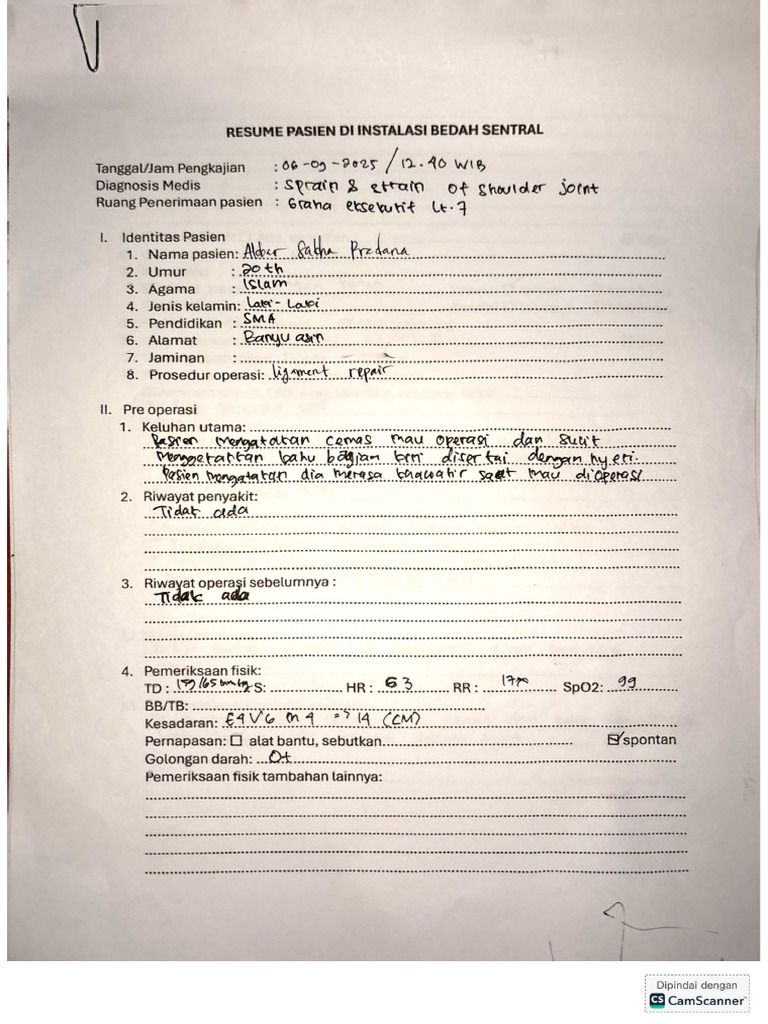 RESUME PASIEN DI INSTALASI BEDAH SENTRAL
Tanggal/Jam Pengkajian : 06-09-2025 / 12.40 WIB
Diagnosis Medis : Sprain & strain of shoulder joint
Ruang Penerimaan pasien : Graha eksekutif Lt.7
I. Identitas Pasien
1. Nama pasien: Akbar Sakha Pradana
2. Umur : 20 th
3. Agama : Islam
4. Jenis kelamin: Laki-Laki
5. Pendidikan : SMA
6. Alamat : Banyuasin
7. Jaminan :
8. Prosedur operasi: ligament repair
II. Pre operasi
1. Keluhan utama:
Pasien mengatakan cemas mau operasi dan sulit
menggerakkan bahu bagian kiri disertai dengan nyeri.
Pasien mengatakan dia merasa khawatir saat mau dioperasi
2. Riwayat penyakit:
Tidak ada
3. Riwayat operasi sebelumnya :
Tidak ada
4. Pemeriksaan fisik:
TD : /65 mmHg S: HR : 63 RR : SpO2: 99
BB/TB:
Kesadaran: E4 V6 M4 => 14 (CM)
Pernapasan: ☐ alat bantu, sebutkan ☑ spontan
Golongan darah: O+
Pemeriksaan fisik tambahan lainnya:
Dipindai dengan
CS CamScanner